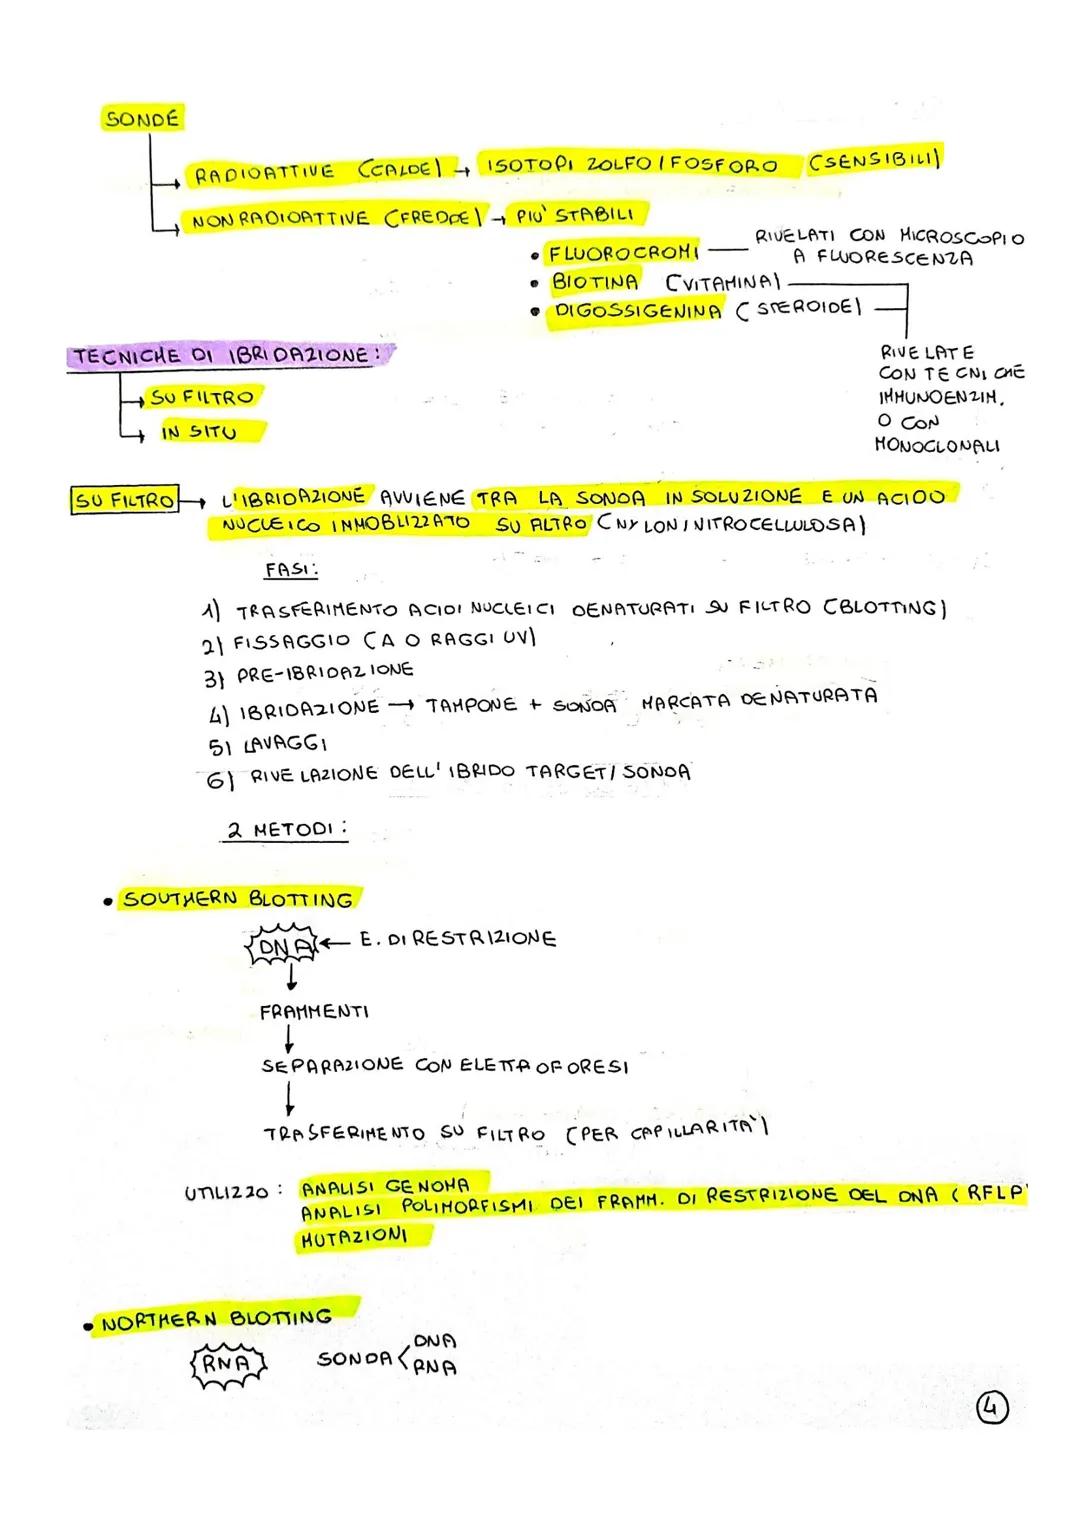 SONDE
RADIOATTIVE (CALDE) → ISOTOPI ZOLFO/FOSFORO (SENSIBILI)
NON RADIOATTIVE (FREDDE) → PIU' STABILI
• FLUOROCROMI — RIVELATI CON MICROSCOPIO A FLUORESCENZA
• BIOTINA (VITAMINA)
• DIGOSSIGENINA (STEROIDE)
RIVELATE
CON TECNICHE
IMMUNOENZIM.
O CON
MONOCLONALI
TECNICHE DI IBRIDAZIONE:
→ SU FILTRO
→ IN SITU
SU FILTRO → L'IBRIDAZIONE AVVIENE TRA LA SONDA IN SOLUZIONE E UN ACIDO
NUCLEICO IMMOBLIZZATO SU FILTRO (NYLON/NITROCELLULOSA)
FASI:
1) TRASFERIMENTO ACIDI NUCLEICI DENATURATI SU FILTRO (BLOTTING)
2) FISSAGGIO (A O RAGGI UV)
3) PRE-IBRIDAZIONE
4) IBRIDAZIONE → TAMPONE + SONDA MARCATA DENATURATA
5) LAVAGGI
6) RIVELAZIONE DELL'IBRIDO TARGET/SONDA
2 METODI:
• SOUTHERN BLOTTING
DNA ← E. DI RESTRIZIONE
↓
FRAMMENTI
↓
SEPARAZIONE CON ELETTROFORESI
↓
TRASFERIMENTO SU FILTRO (PER CAPILLARITÀ)
UTILIZZO: ANALISI GENOMA
ANALISI POLIMORFISMI DEI FRAMM. DI RESTRIZIONE DEL DNA (RFLP
MUTAZIONI
• NORTHERN BLOTTING
RNA SONDA < DNA
RNA
4